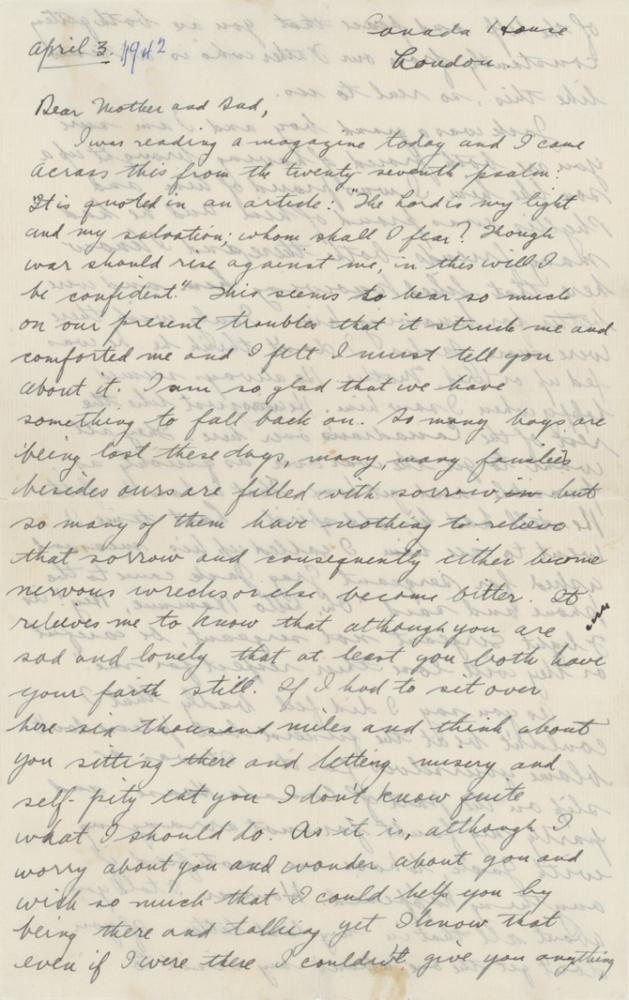 Canada House
April 3. 1942
London.
Dear Mother and Dad,
I was reading a magazine today and I came
across this from the twenty seventh psalm:
It is quoted in an article: "The Lord is my light
and my salvation; whom shall I fear? Though
war should rise against me, in this will I
be confident." This seems to bear so much
on our present troubles that it struck me and
comforted me and I felt I must tell you
about it. I am so glad that we have
something to fall back on. So many boys are
being lost these days, many, many families
besides ours are filled with sorrow, in but
so many of them have nothing to relieve
that sorrow and consequently either become
nervous wrecks or else become bitter. It
relieves me to know that although you are
sad and lonely that at least you both have
your faith still. If I had to sit over
here six thousand miles and think about
you sitting there and letting misery and
self-pity eat you I don't know quite
what I should do. As it is, although I
worry about you and wonder about you and
wish so much that I could help you by
being there and talking yet I know that
even if I were there I couldn't give you anything